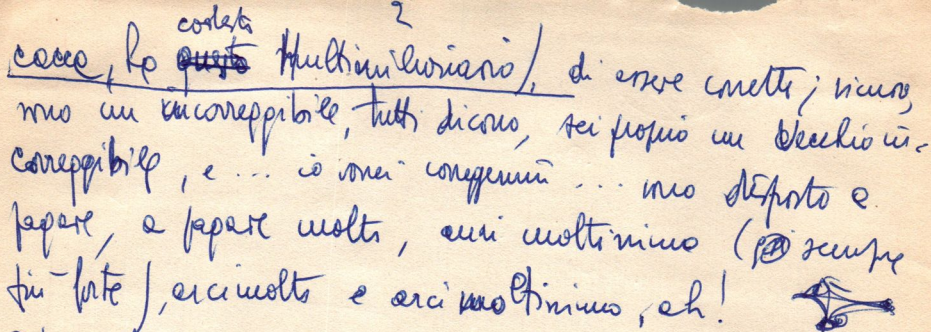 cotesto 2
cacca, ha questo Multimiliosiario), di essere corretti; sicuro,
sono un incorreggibile, tutti dicono, sei proprio un Vecchio in-
correggibile, e ... io vorrei correggermi ... sono disposto a
pagare, a pagare molto, anzi moltissimo (poi sempre
più forte), arcimolto e arcimoltissimo, ah!